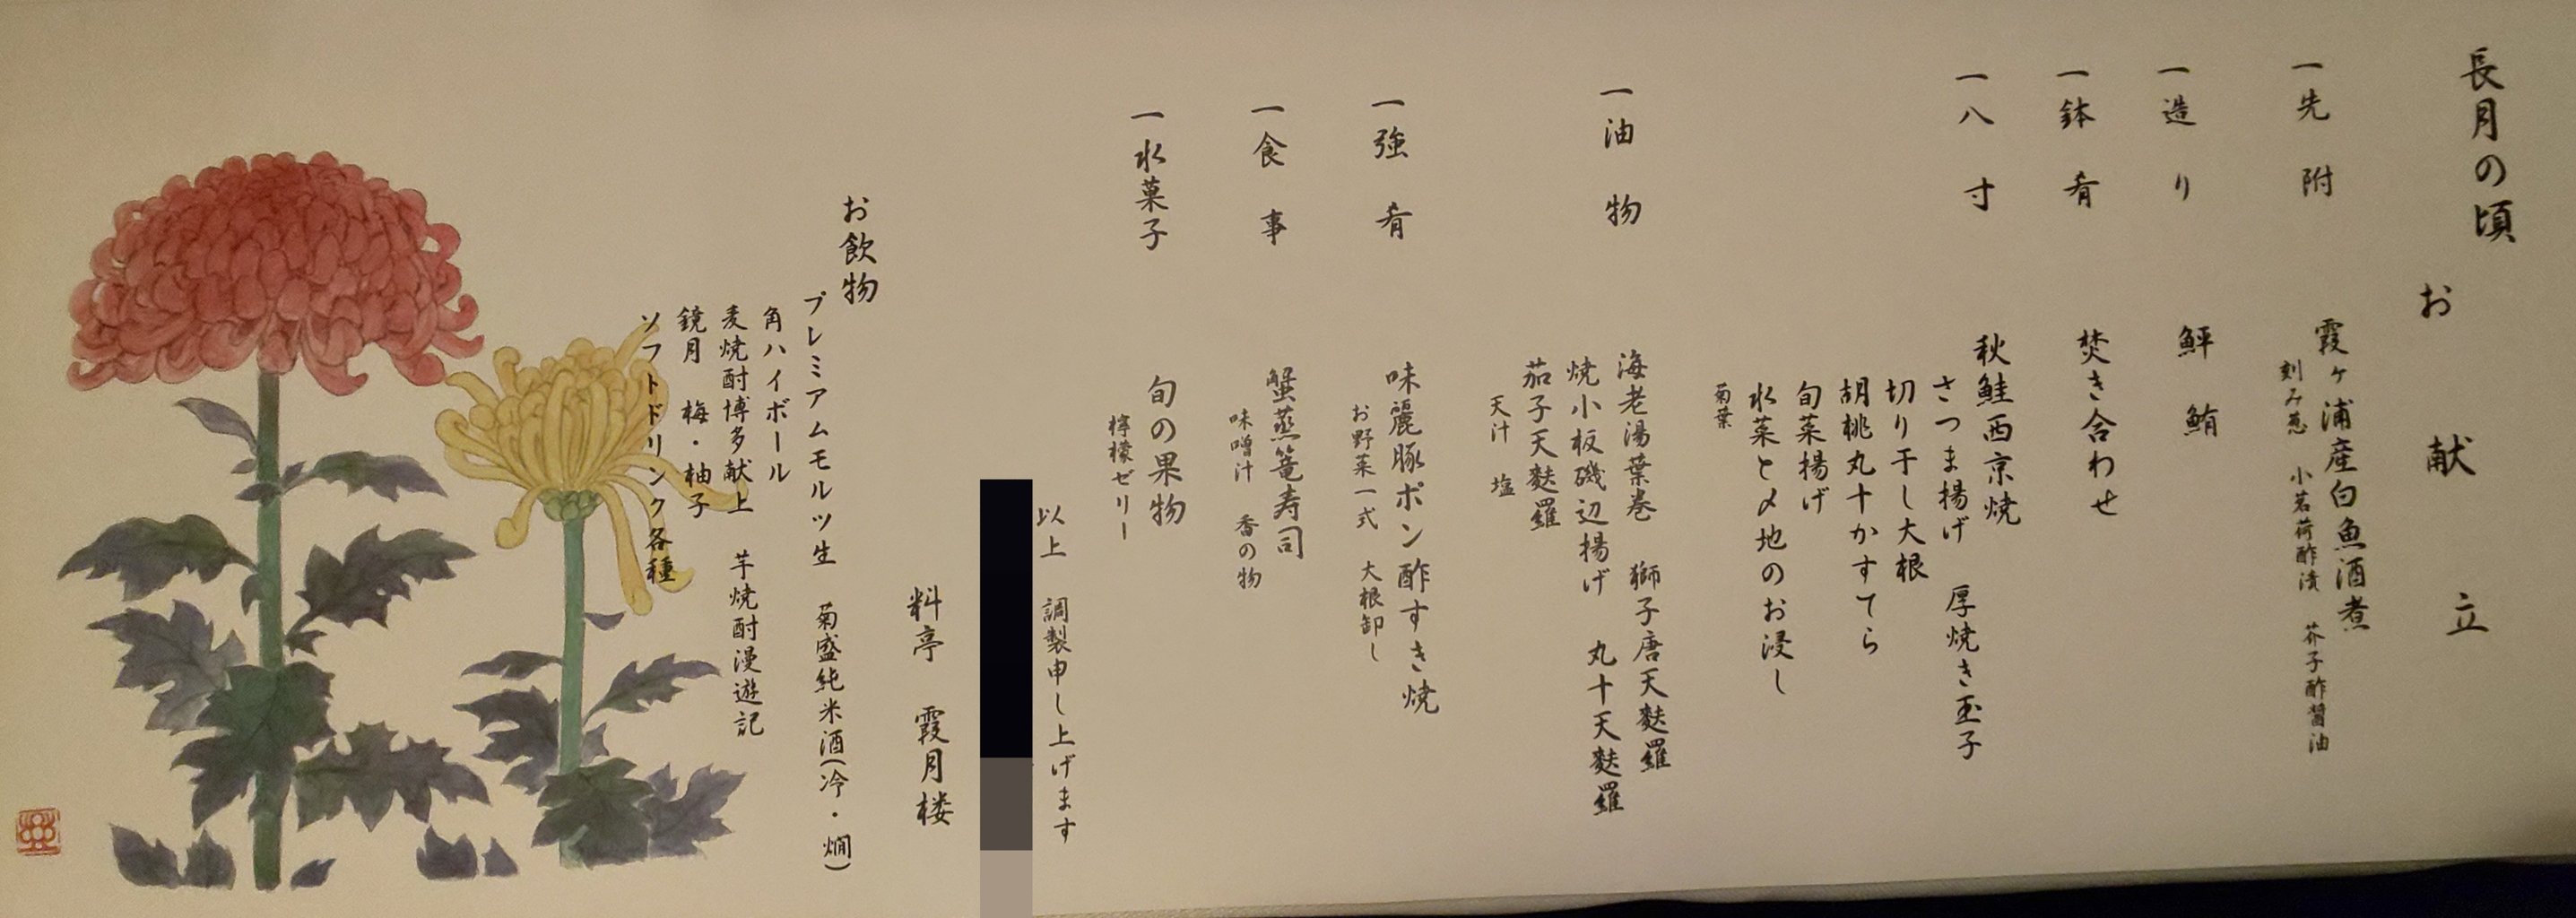 長月の頃
お献立
一先附
霞ヶ浦産白魚酒煮
刻み葱 小茗荷酢漬 芥子酢醤油
一造り
鮃 鮪
一鉢肴
焚き合わせ
一八寸
秋鮭西京焼
さつま揚げ 厚焼き玉子
切り干し大根
胡桃丸十かすてら
旬菜揚げ
水菜と〆地のお浸し
菊葉
一油物
海老湯葉巻 獅子唐天麩羅
焼小板磯辺揚げ 丸十天麩羅
茄子天麩羅
天汁 塩
一強肴
味麗豚ポン酢すき焼
お野菜一式 大根卸し
一食事
蟹蒸篭寿司
味噌汁 香の物
一水菓子
旬の果物
檸檬ゼリー
以上 調製申し上げます
料亭 霞月楼
お飲物
プレミアムモルツ生 菊盛純米酒(冷・燗)
角ハイボール
麦焼酎博多献上 芋焼酎漫遊記
鏡月 梅・柚子
ソフトドリンク各種